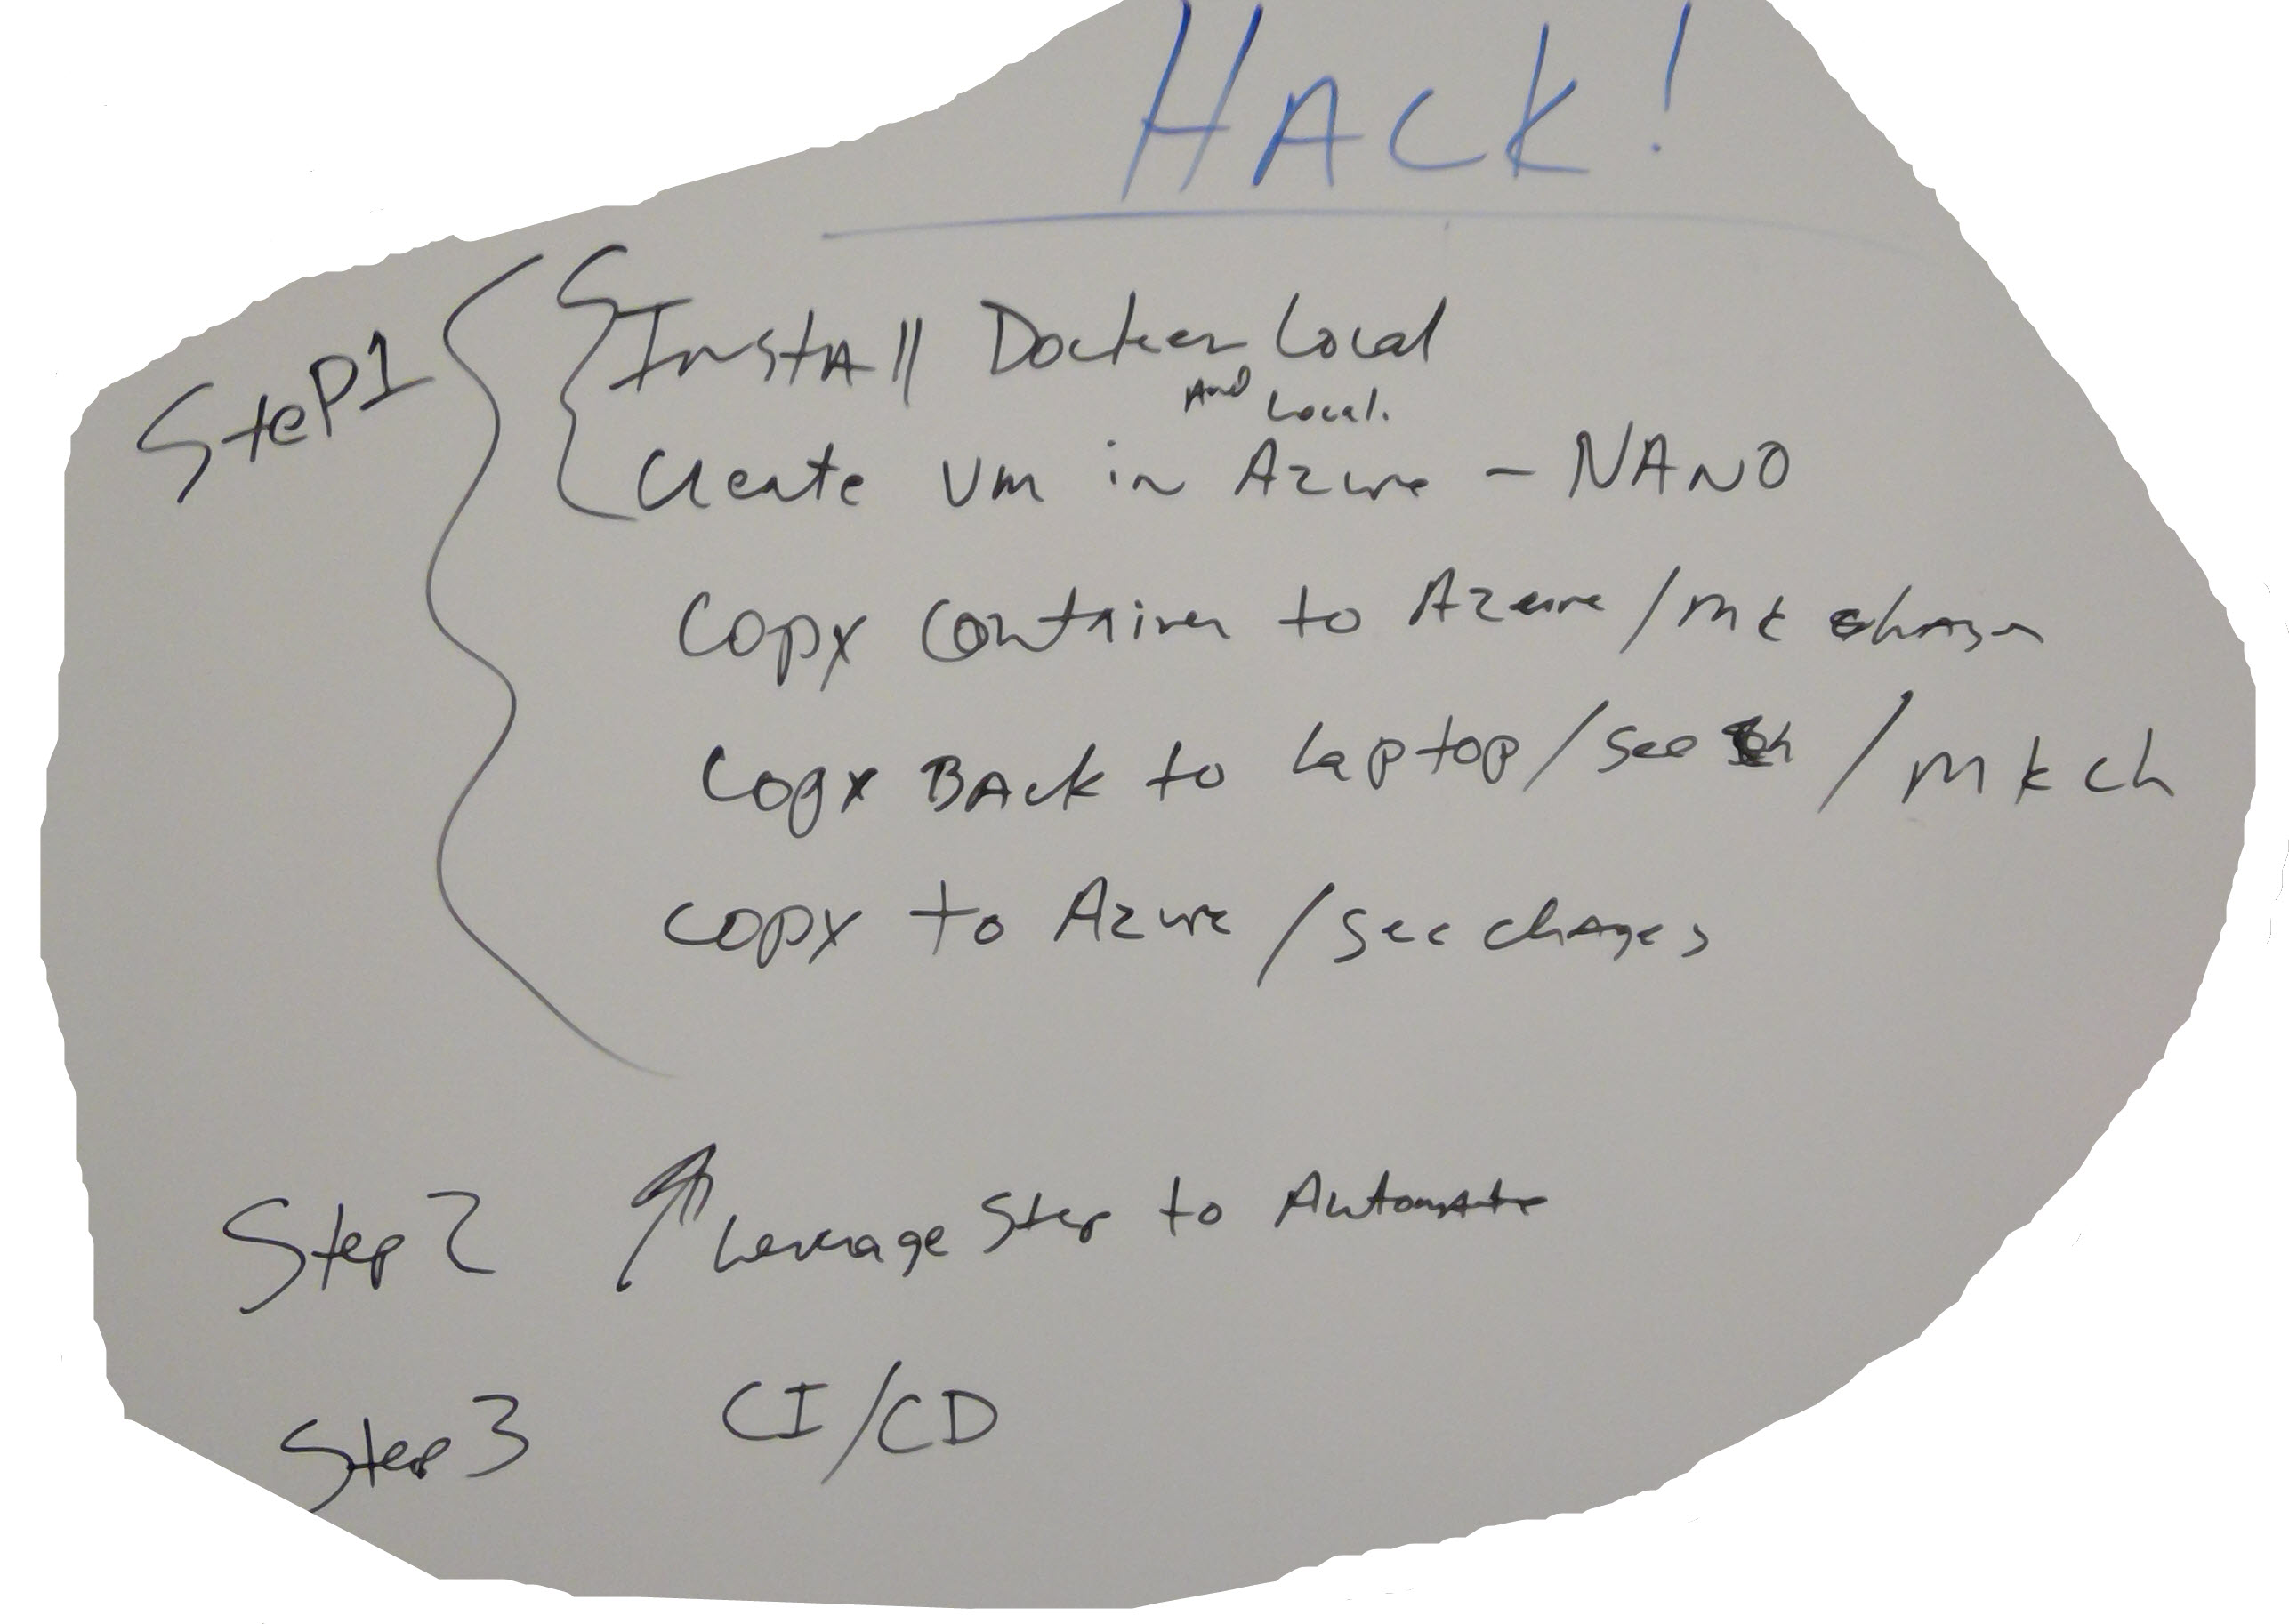 HACK!
Step1
Install Docker Local
And Local.
Create Vm in Azure - NANO
Copy Container to Azure / mk
Copy Back to laptop / see ch / mk ch
copy to Azure / see chages
Step 2 Leverage Step to Automate
Step 3 CI/CD